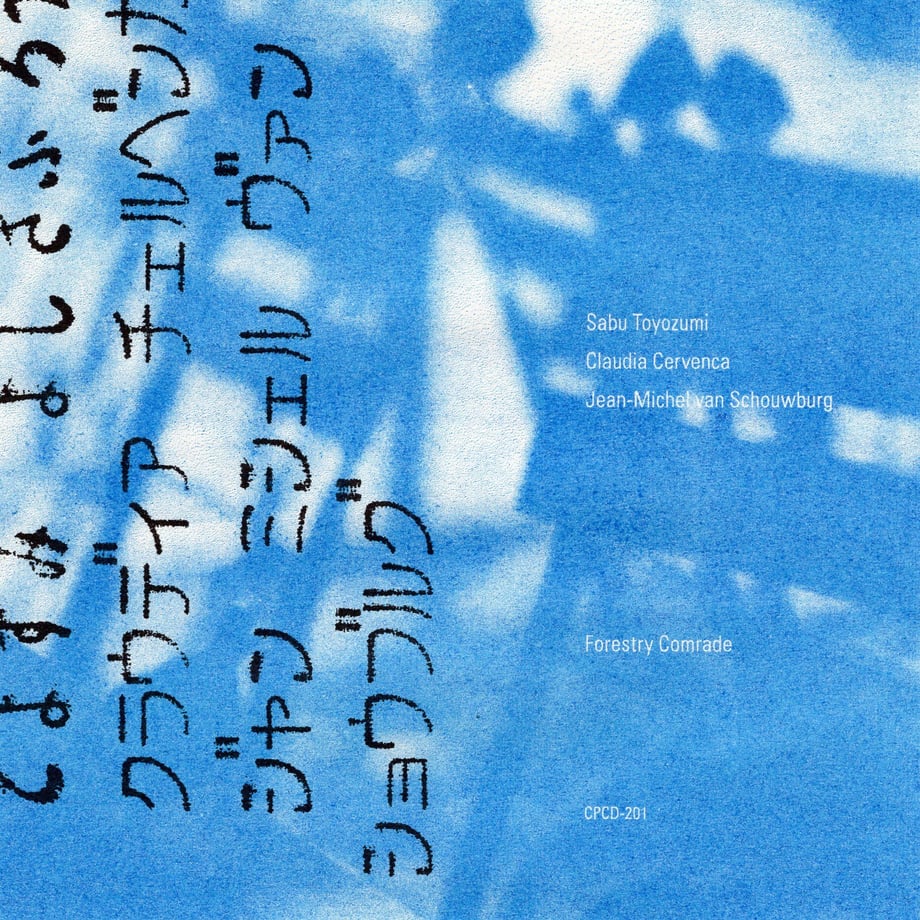 とよずみ よしさぶろう
クラウディア チェルベンカ
ジャン ミシェル ヴァン
ショウブルグ
Sabu Toyozumi
Claudia Cervenca
Jean-Michel van Schouwburg
Forestry Comrade
CPCD-201